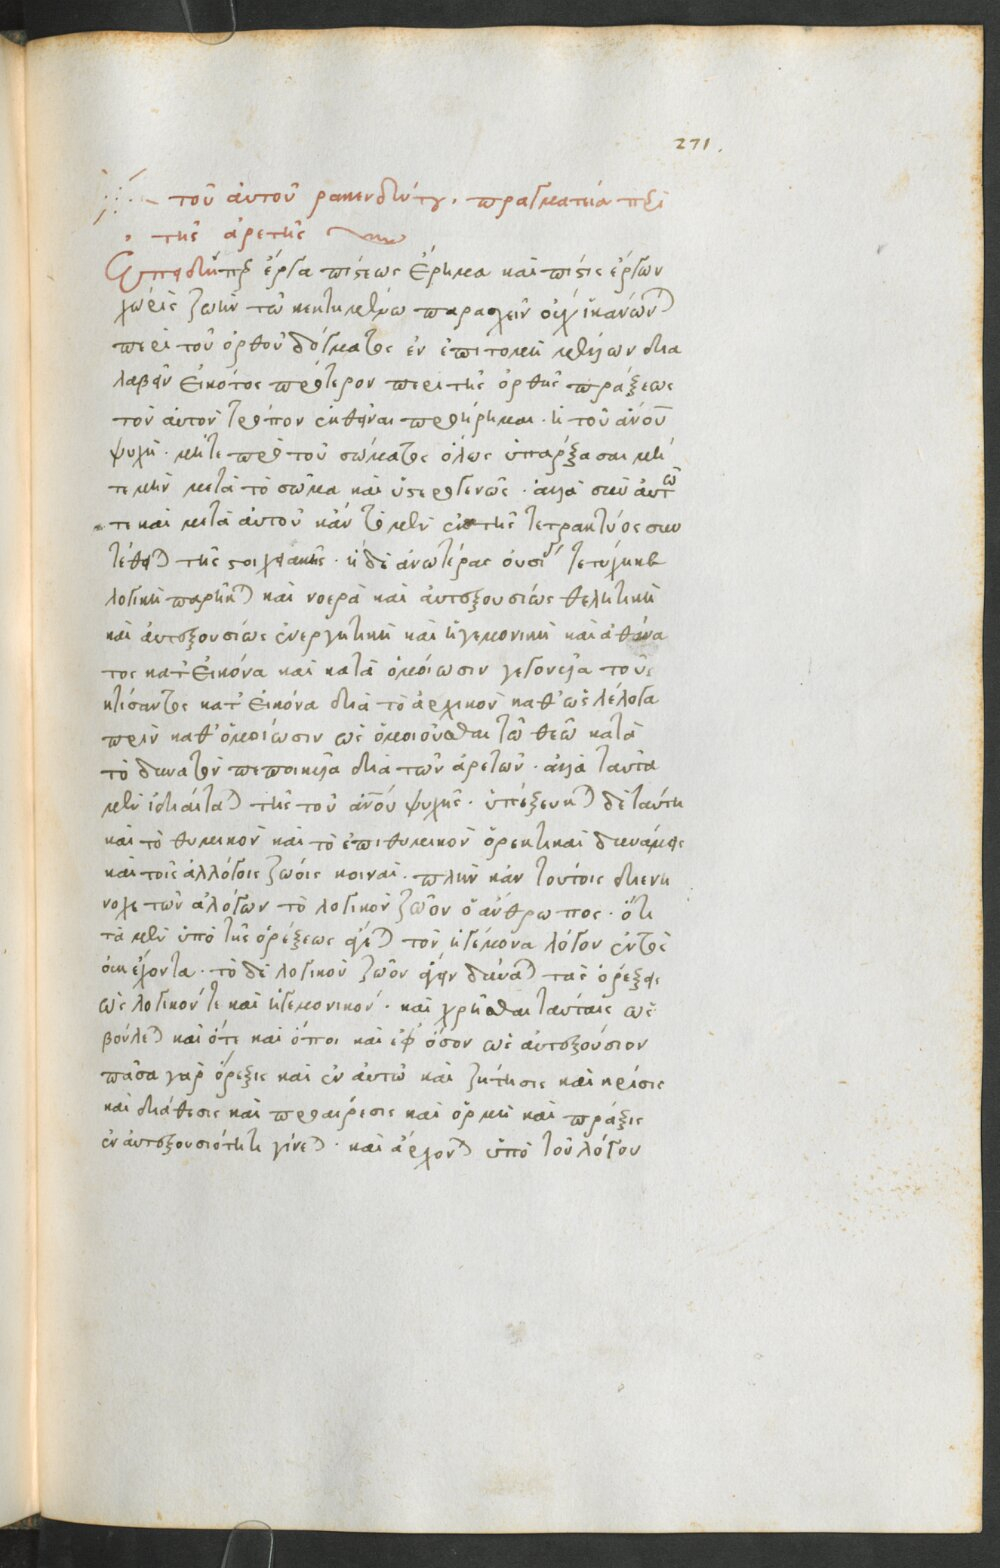 271.
τοῦ αὐτοῦ ρακενδύτου. πραγματεία περὶ
τῆς ἀρετῆς
Ἐπειδήπερ ἔργα πίστεως ἔρημα καὶ πίστις ἔργων
χωρὶς ζωὴν τῶ κεκτημένω παρασχεῖν οὐχ ἱκανῶν
περὶ τοῦ ὀρθοῦ δόγματος ἐν ἐπιτομῆ μέλλων δια
λαβεῖν εἰκότως πρότερον περὶ τῆς ὀρθῆς πράξεως
τὸν αὐτὸν τρόπον ἐκθεῖναι προήρημαι. ἡ τοῦ ἀνου
ψυχὴ. μήτε πρὸ τοῦ σώματος ὅλως ὑπάρξασα μή
τε μὴν μετὰ τὸ σῶμα καὶ ὑστερογενῶς. ἀλλὰ σὺν αὐτῶ
τε καὶ μετὰ αὐτοῦ κἂν τὸ μὲν ἐκ τῆς τετρακτύος συν
τέθειται τῆς στοιχειακῆς. ἡ δὲ ἀνωτέρας οὐσίας τετύχηκε
λογικὴ παρῆκται καὶ νοερὰ καὶ αὐτεξουσίως θελητικὴ
καὶ αὐτεξουσίως ἐνεργητικὴ καὶ ἡγεμονικὴ καὶ ἀθάνα
τος κατ εἰκόνα καὶ κατὰ ὁμοίωσιν γεγονυῖα τοῦ
κτίσαντος κατ εἰκόνα διὰ τὸ ἀρχικὸν καθ ὡς λέλογα
πρὶν καθ ὁμοίωσιν ὡς ὁμοιοῦσθαι τῶ θεῶ κατὰ
τὸ δυνατὸν πεποικυῖα διὰ τῶν ἀρετῶν. ἀλλὰ ταῦτα
μὲν ἰδιαίτατα τῆς τοῦ ἀνου ψυχῆς. ὑπέζευκται δὲ ταύτη
καὶ τὸ θυμικὸν καὶ τὸ ἐπιθυμικὸν ὀρεκτικαὶ δυνάμεις
καὶ τοῖς ἀλλόγοις ζώοις κοιναὶ. πλὴν κἂν τούτοις διενή
νοχε τῶν ἀλόγων τὸ λογικὸν ζῶον ὁ ἄνθρωπος. ὅτι
τὰ μὲν ὑπὸ τῆς ὀρέξεως ἄγεται τὸν ἡγεμόνα λόγον ἐντὸς
οὐκ ἔχοντα. τὸ δὲ λογικὸν ζῶον ἄγειν δύναται τὰς ὀρέξεις
ὡς λογικόν τε καὶ ἡγεμονικόν. καὶ χρῆσθαι ταύταις ὡς
βούλεται καὶ ὅτε καὶ ὅποι καὶ ἐφ ὅσον ὡς αὐτεξούσιον
πᾶσα γὰρ ὄρεξις καὶ ἐν αὐτῶ καὶ ζήτησις καὶ κρίσις
καὶ διάθεσις καὶ προαίρεσις καὶ ὁρμὴ καὶ πρᾶξις
ἐν αὐτεξουσιότητι γίνεται. καὶ ἄρχονται ὑπὸ τοῦ λόγου